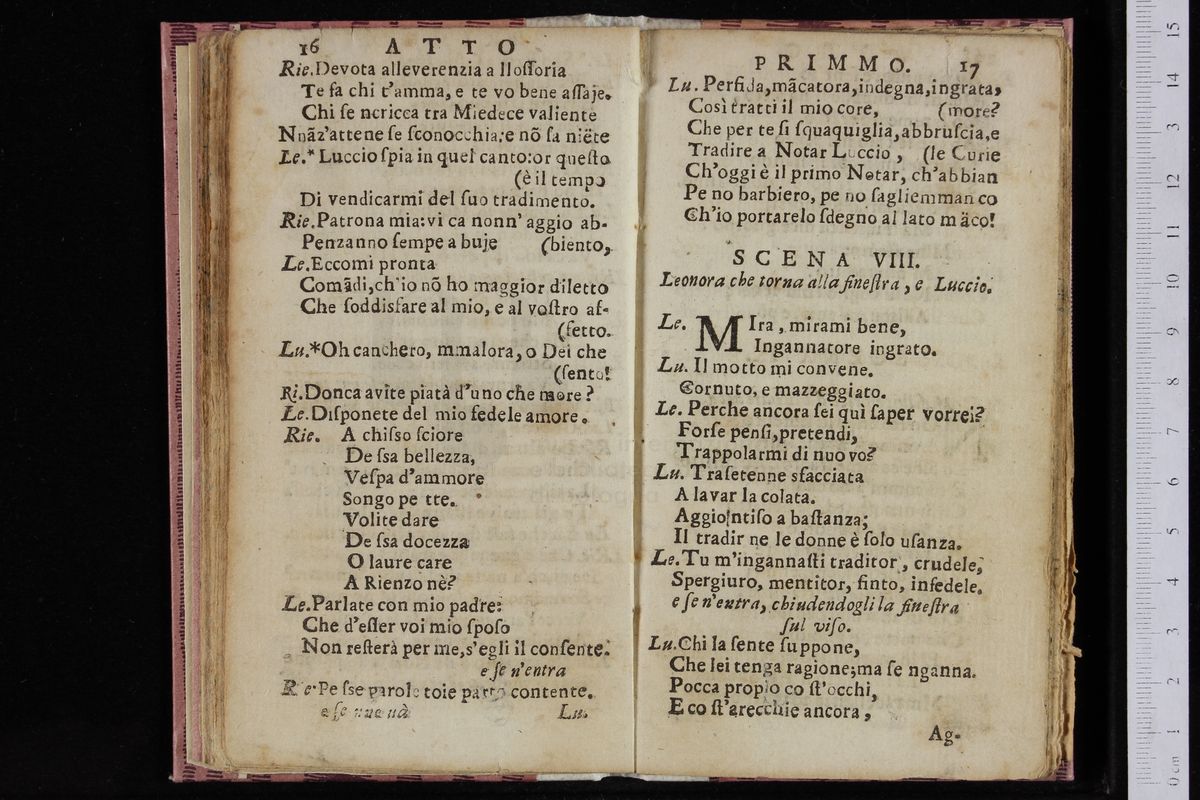 16 ATTO
Rie.Devota alleverenzia a llosſoria
Te fa chi t'amma, e te vo bene aſſaje.
Chi ſe ncricca tra Miedece valiente
Nnãz'attene ſe ſconocchia, e nõ ſa niẽte
Le.* Luccio ſpia in quel canto: or queſto
(è il tempo
Di vendicarmi del ſuo tradimento.
Rie.Patrona mia: vi ca nonn' aggio ab-
Penzanno ſempe a buje (biento,
Le.Eccomi pronta
Comãdi, ch'io nõ ho maggior diletto
Che ſoddisfare al mio, e al voſtro af-
(fetto.
Lu.*Oh canchero, mmalora, o Dei che
(ſento!
Ri.Donca avite piatà d'uno che more?
Le.Diſponete del mio fedele amore.
Rie. A chiſso ſciore
De ſsa bellezza,
Veſpa d'ammore
Songo pe tte.
Volite dare
De ſsa docezza
O laure care
A Rienzo nè?
Le.Parlate con mio padre:
Che d'eſſer voi mio ſpoſo
Non reſterà per me, s'egli il conſente.
e ſe n'entra
Rie.Pe ſse parole toie parto contente.
e ſe nne và Lu.
PRIMMO. 17
Lu. Perfida, mãcatora, indegna, ingrata,
Così tratti il mio core, (more?
Che per te ſi ſquaquiglia, abbruſcia, e
Tradire a Notar Luccio, (le Curie
Ch'oggi è il primo Notar, ch'abbian
Pe no barbiero, pe no ſagliemmanco
Ch'io portarelo ſdegno al lato mãco!
SCENA VIII.
Leonora che torna alla fineſtra, e Luccio.
Le. MIra, mirami bene,
Ingannatore ingrato.
Lu. Il motto mi convene.
Cornuto, e mazzeggiato.
Le. Perche ancora ſei quì ſaper vorrei?
Forſe penſi, pretendi,
Trappolarmi di nuovo?
Lu. Traſetenne sfacciata
A lavar la colata.
Aggio ntiſo a baſtanza;
Il tradir ne le donne è ſolo uſanza.
Le.Tu m'ingannaſti traditor, crudele,
Spergiuro, mentitor, finto, infedele.
e ſe n'entra, chiudendogli la fineſtra
ſul viſo.
Lu.Chi la ſente ſuppone,
Che lei tenga ragione; ma ſe nganna.
Pocca propio co ſt'occhi,
E co ſt'arecchie ancora,
Ag-
15
14
13
12
11
10
9
8
7
6
5
4
3
2
1
0 cm